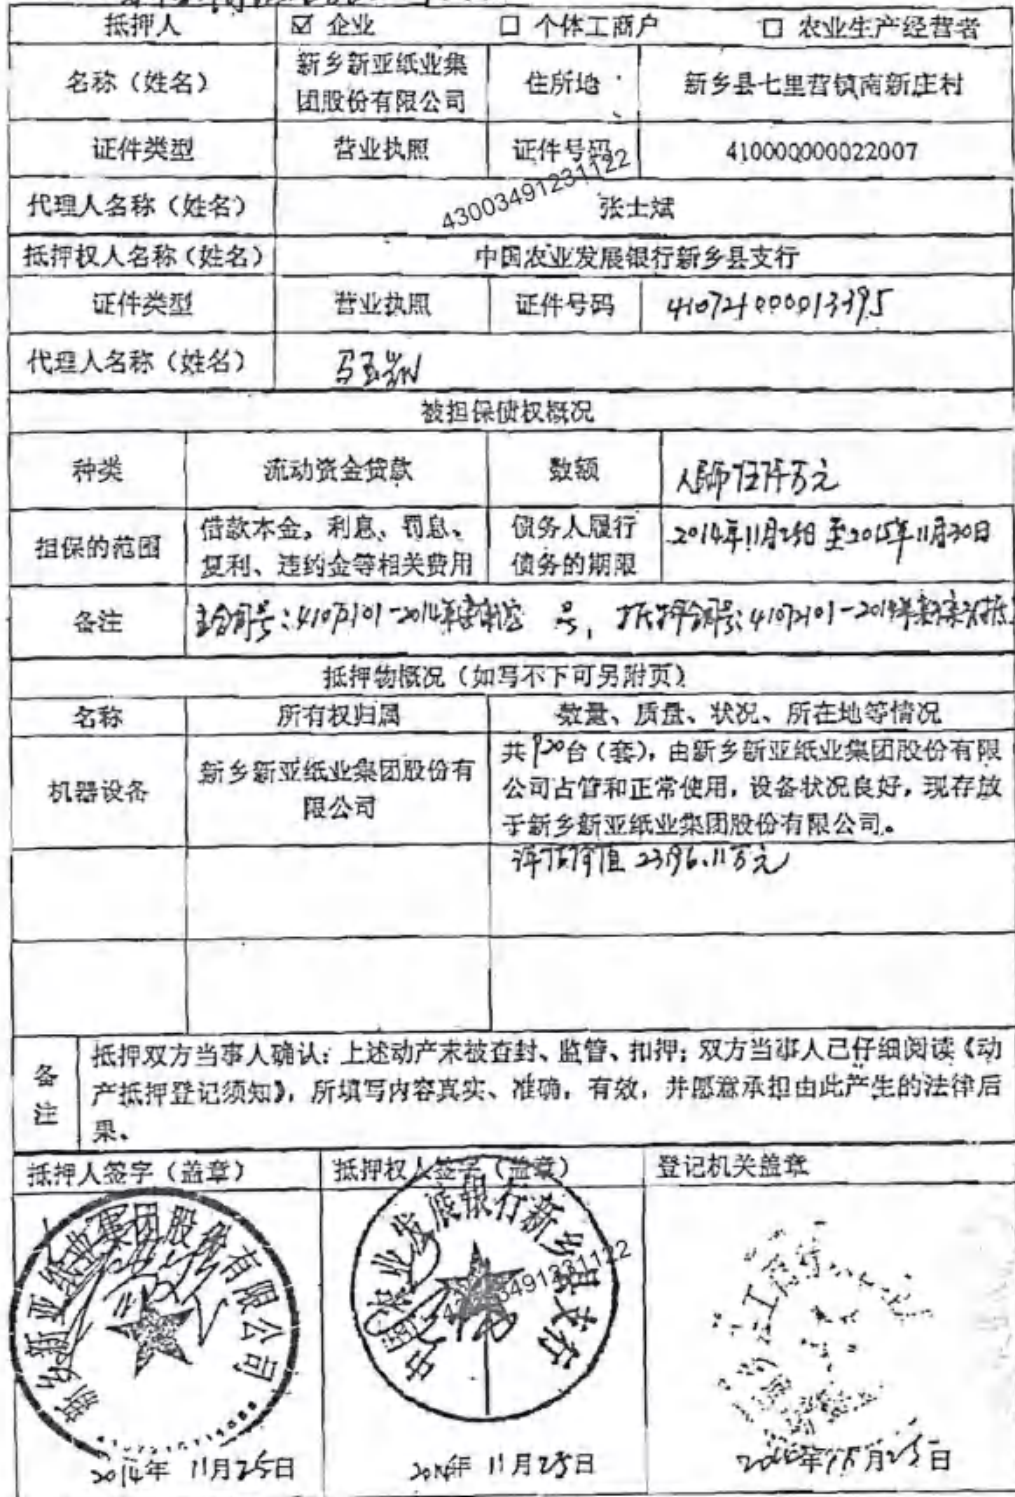 抵押人 ☑ 企业 ☐ 个体工商户 ☐ 农业生产经营者
名称（姓名） 新乡新亚纸业集团股份有限公司 住所地 新乡县七里营镇南新庄村
证件类型 营业执照 证件号码 410000000022007
43003491231122
代理人名称（姓名） 张士斌
抵押权人名称（姓名） 中国农业发展银行新乡县支行
证件类型 营业执照 证件号码 410721000013395
代理人名称（姓名）
被担保债权概况
种类 流动资金贷款 数额 人民币伍仟万元
担保的范围 借款本金，利息、罚息、 债务人履行 2014年11月25日至2015年11月30日
复利、违约金等相关费用 债务的期限
备注 主合同号：41072101-2014年 号，抵押合同号：41072101-2014年
抵押物概况（如写不下可另附页）
名称 所有权归属 数量、质量、状况、所在地等情况
机器设备 新乡新亚纸业集团股份有限公司 共920台（套），由新乡新亚纸业集团股份有限
公司占管和正常使用，设备状况良好，现存放
于新乡新亚纸业集团股份有限公司。
评估净值 23196.11万元
备注 抵押双方当事人确认：上述动产未被查封、监管、扣押；双方当事人已仔细阅读《动
产抵押登记须知》，所填写内容真实、准确，有效，并愿意承担由此产生的法律后
果。
抵押人签字（盖章） 抵押权人签字（盖章） 登记机关盖章
新乡新亚纸业集团股份有限公司
中国农业发展银行新乡县支行
43003491231122
2014年 11月25日 2014年 11月25日 年 月25日